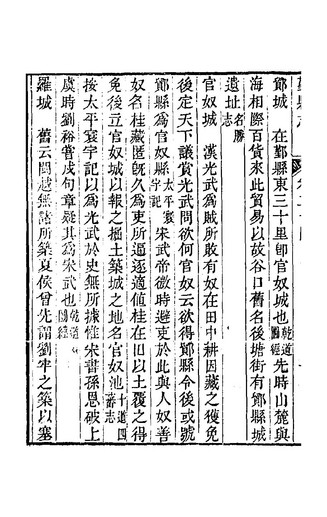 鄮城　在鄞縣東三十里卽官奴城也乾道圖經先時山麓與
海相際百貨來此貿易以故谷口舊名後塘街有鄮縣城
遺址名勝志
官奴城　漢光武爲賊所敗有奴在田中耕因藏之獲免
後定天下議賞光武問欲何官奴云欲得鄮縣令後或號
鄮縣爲官奴縣太平寰宇記宋武帝微時避吏於此與人奴善
奴名桂藏匿旣久爲吏所逼逐適値桂在田以土覆之得
免後立官奴城以報之揷土築城之地名官奴池十道四蕃志
按太平寰宇記以爲光武於史無所據惟宋書孫恩破上
虞時劉裕嘗戍句章疑其爲宋武也乾道圖經
羅城　舊云閩越無諸所築夏侯曾先謂劉牢之築以塞